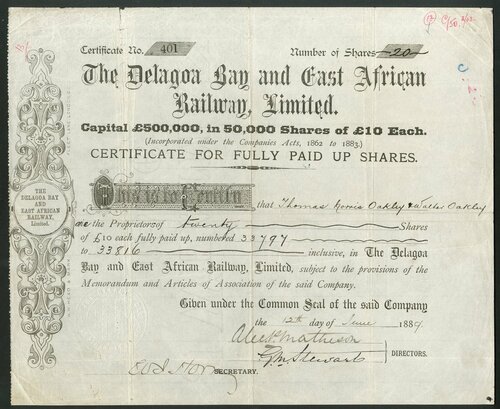 Certificate No. 401 Number of Shares 20
The Delagoa Bay and East African
Railway, Limited.
Capital £500,000, in 50,000 Shares of £10 Each.
(Incorporated under the Companies Acts, 1862 to 1883.)
CERTIFICATE FOR FULLY PAID UP SHARES.
This is to Certify that Thomas Norris Oakley & Walter Oakley
are the Proprietors of twenty Shares
of £10 each fully paid up, numbered 33797
to 33816 inclusive, in The Delagoa
Bay and East African Railway, Limited, subject to the provisions of the
Memorandum and Articles of Association of the said Company.
Given under the Common Seal of the said Company
the 12th day of June 1889.
Alex. Matheson
Stewart
DIRECTORS.
SECRETARY.
THE
DELAGOA BAY
AND
EAST AFRICAN
RAILWAY,
Limited.